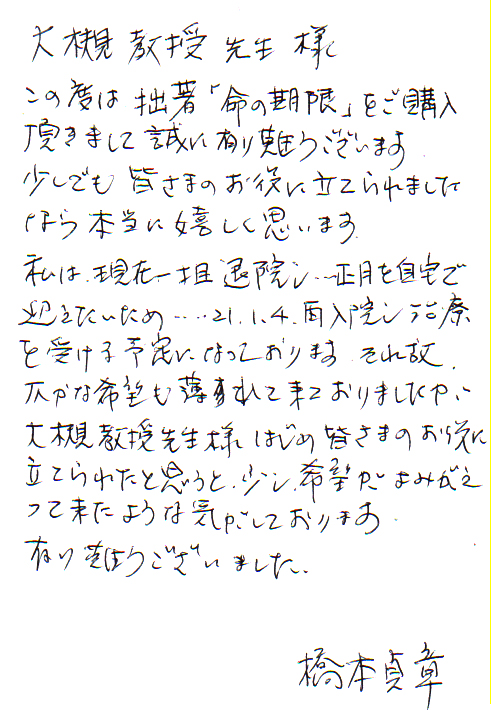 大槻教授先生様
この度は拙著「命の期限」をご購入
頂きまして誠に有り難うございます
少しでも皆さまのお役に立てられました
なら本当に嬉しく思います
私は、現在一担退院し…正月を自宅で
迎えたいため‥‥21.1.4.再入院し治療
を受ける予定になっております それ故、
仄かな希望も薄れて来ておりましたが、
大槻教授先生様はじめ皆さまのお役に
立てられたと思うと、少し、希望がよみがえ
って来たような気がしております
有り難うございました、
橋本貞章